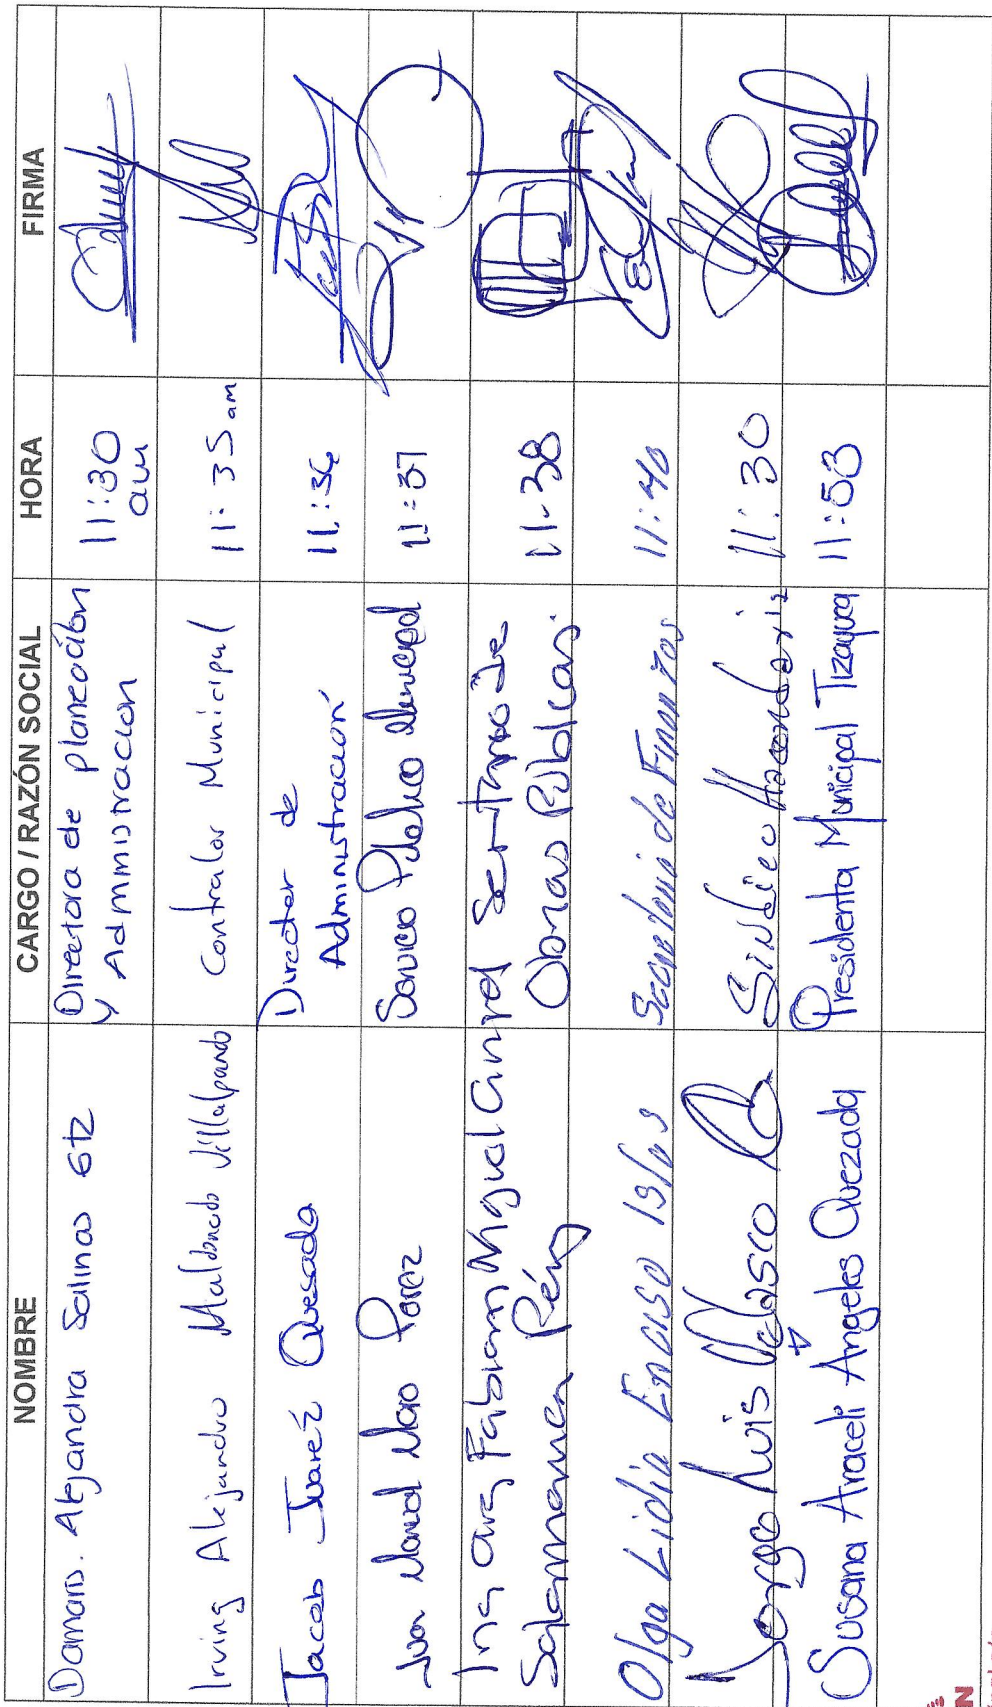 NOMBRE CARGO / RAZÓN SOCIAL HORA FIRMA
Damaris. Alejandra Salinas Gtz Directora de planeación y Administracion 11:30 am
Irving Alejandro Maldonado Villalpando Contralor Municipal 11:35 am
Jacob Juarez Quesada Director de Administración 11:36
Juan Manuel Moro Perez Servico Publico Municipal 11:37
Ing Arq Fabian Miguel Angel Salamanca Pérez Secritario de Obras Públicas. 11:38
Olga Lidia Enciso Islas Secretaria de Finanzas 11:40
Jorge Luis Velasco Sindico Hacendario 11:30
Susana Araceli Ángeles Quezada Presidenta Municipal Tizayuca 11:53
N